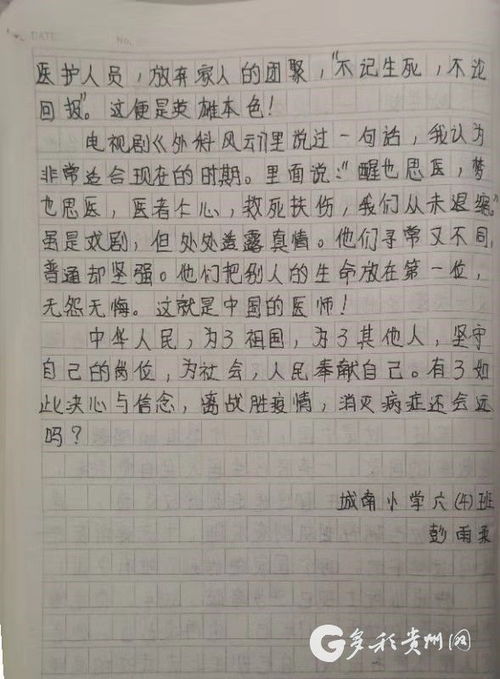 DATE
No.
医护人员，放弃家人的团聚，"不记生死，不论
回报"。这便是英雄本色！
电视剧《外科风云》里说过一句话，我认为
非常适合现在的时期。里面说："醒也思医，梦
也思医，医者仁心，救死扶伤，我们从未退缩。"
虽是戏剧，但处处透露真情。他们寻常又不同，
普通却坚强。他们把别人的生命放在第一位，
无怨无悔。这就是中国的医师！
中华人民，为了祖国，为了其他人，坚守
自己的岗位，为社会，人民奉献自己。有了如
此决心与信念，离战胜疫情，消灭病症还会远
吗？
城南小学六(4)班
彭雨柔
多彩贵州网